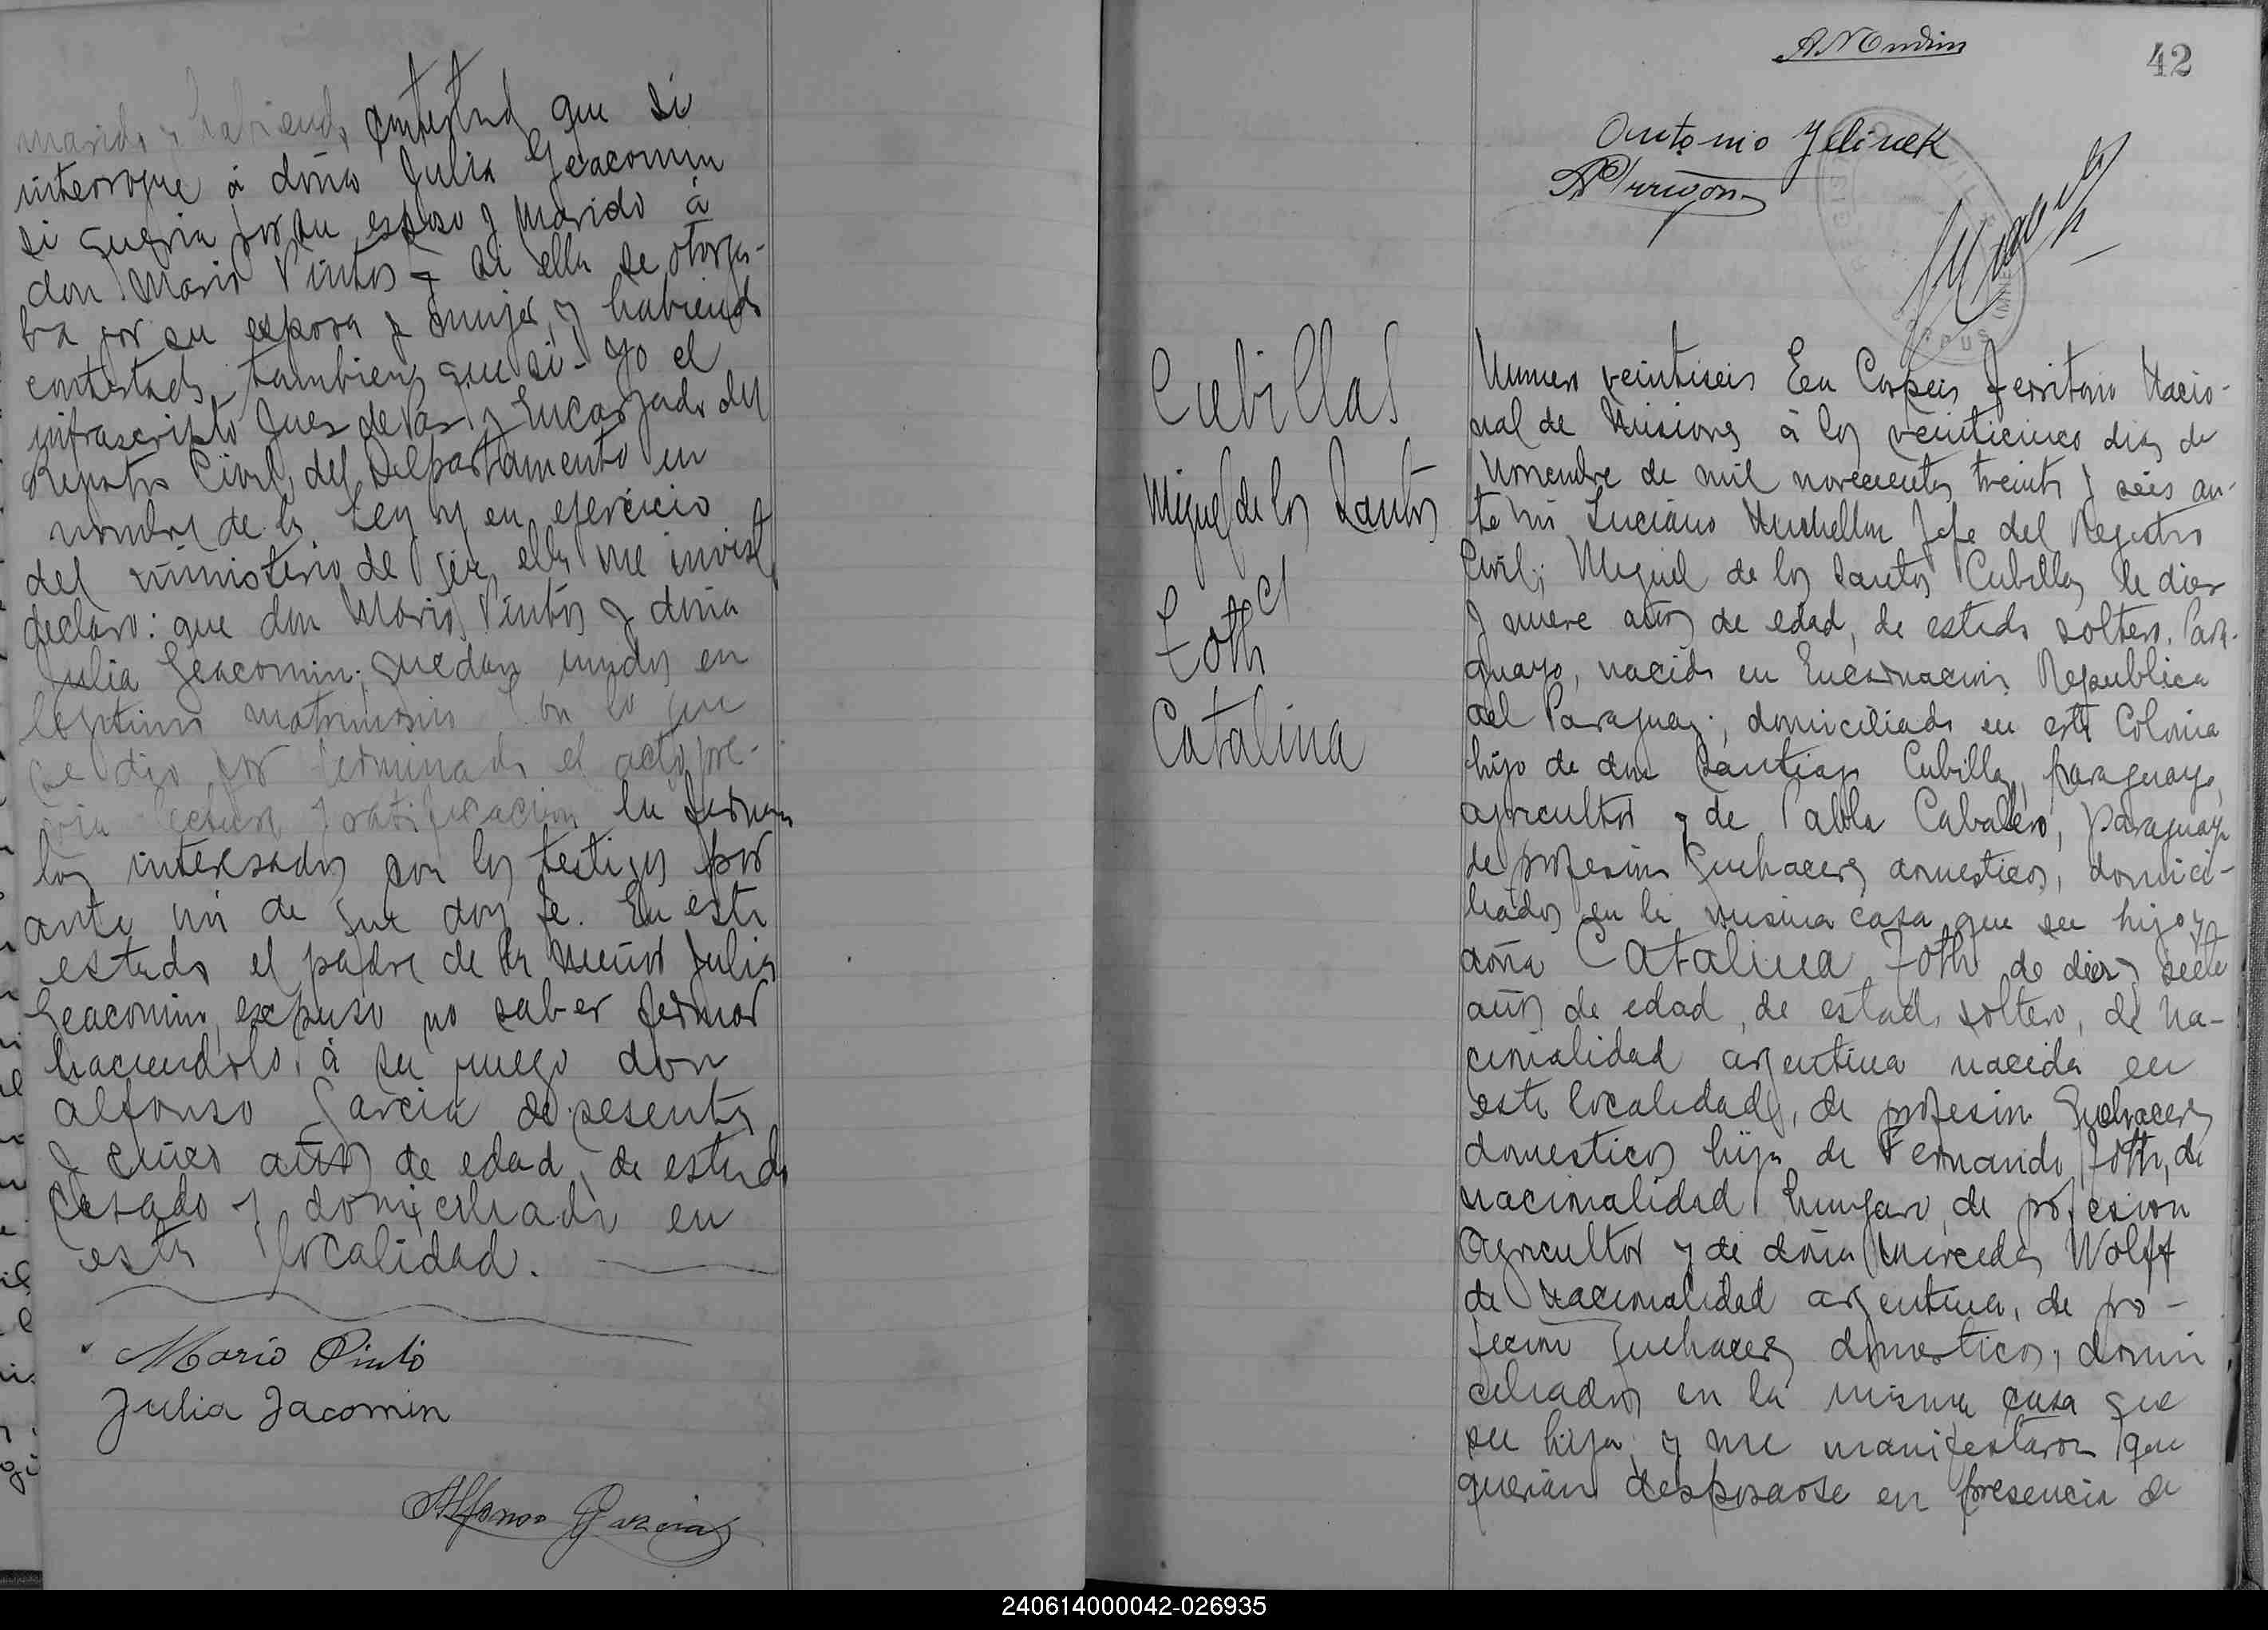 marido y habiendo contestado que si
interrogue á doña Julia Geacomin
si queria por su esposo y marido á
don Mario Pintos y si ella se otorga-
ba por su esposa y mujer, y habiendo
contestado tambien que si - yo el
infrascripto Juez de Paz y Encargado del
Registro Civil, del Departamento en
nombre de la Ley y en ejercicio
del ministerio de que ella me inviste
declaro: que don Mario Pintos y doña
Julia Geacomin; quedan unidos en
legitimo matrimonio Con lo que
se dio por terminado el acto pre-
via lectura y ratificacion la firman
los interesados con los testigos por
ante mi de que doy fe. En este
estado el padre de la menor Julia
Geacomin, expuso no saber firmar
haciendolo, á su ruego don
Alfonso Garcia de sesenta
y cinco años de edad, de estado
casado y domiciliado en
esta localidad.
Mario Pinto
Julia Jacomin
Alfonso Garcia
42
Antonio Jelinek
Cubillas
Miguel de los Santos
c/
Toth
Catalina
Numero veintiseis En Corpus Territorio Nacio-
nal de Misiones á los veinticinco dias de
Noviembre de mil novecientos treinta y seis an-
te mi Luciano Jefe del Registro
Civil; Miguel de los Santos Cubillas de diez
y nueve años de edad, de estado soltero, Para-
guayo, nacido en Encarnacion Republica
del Paraguay; domiciliado en esta Colonia
hijo de don Santiago Cubillas, paraguayo,
agricultor y de Pabla Caballero, paraguaya
de profesion quehaceres domesticos, domici-
liados en la misma casa que su hijo y
doña Catalina Toth de diez y siete
años de edad, de estado soltero, de na-
cionalidad argentina nacida en
esta localidad, de profesion quehaceres
domesticos hija de Fernando Toth, de
nacionalidad hungaro, de profesion
Agricultor y de doña Mercedes Wolff
de nacionalidad argentina, de pro-
fecion quehaceres domesticos, domi
ciliados en la misma casa que
su hija, y me manifestaron que
querian desposarse en presencia de
240614000042-026935